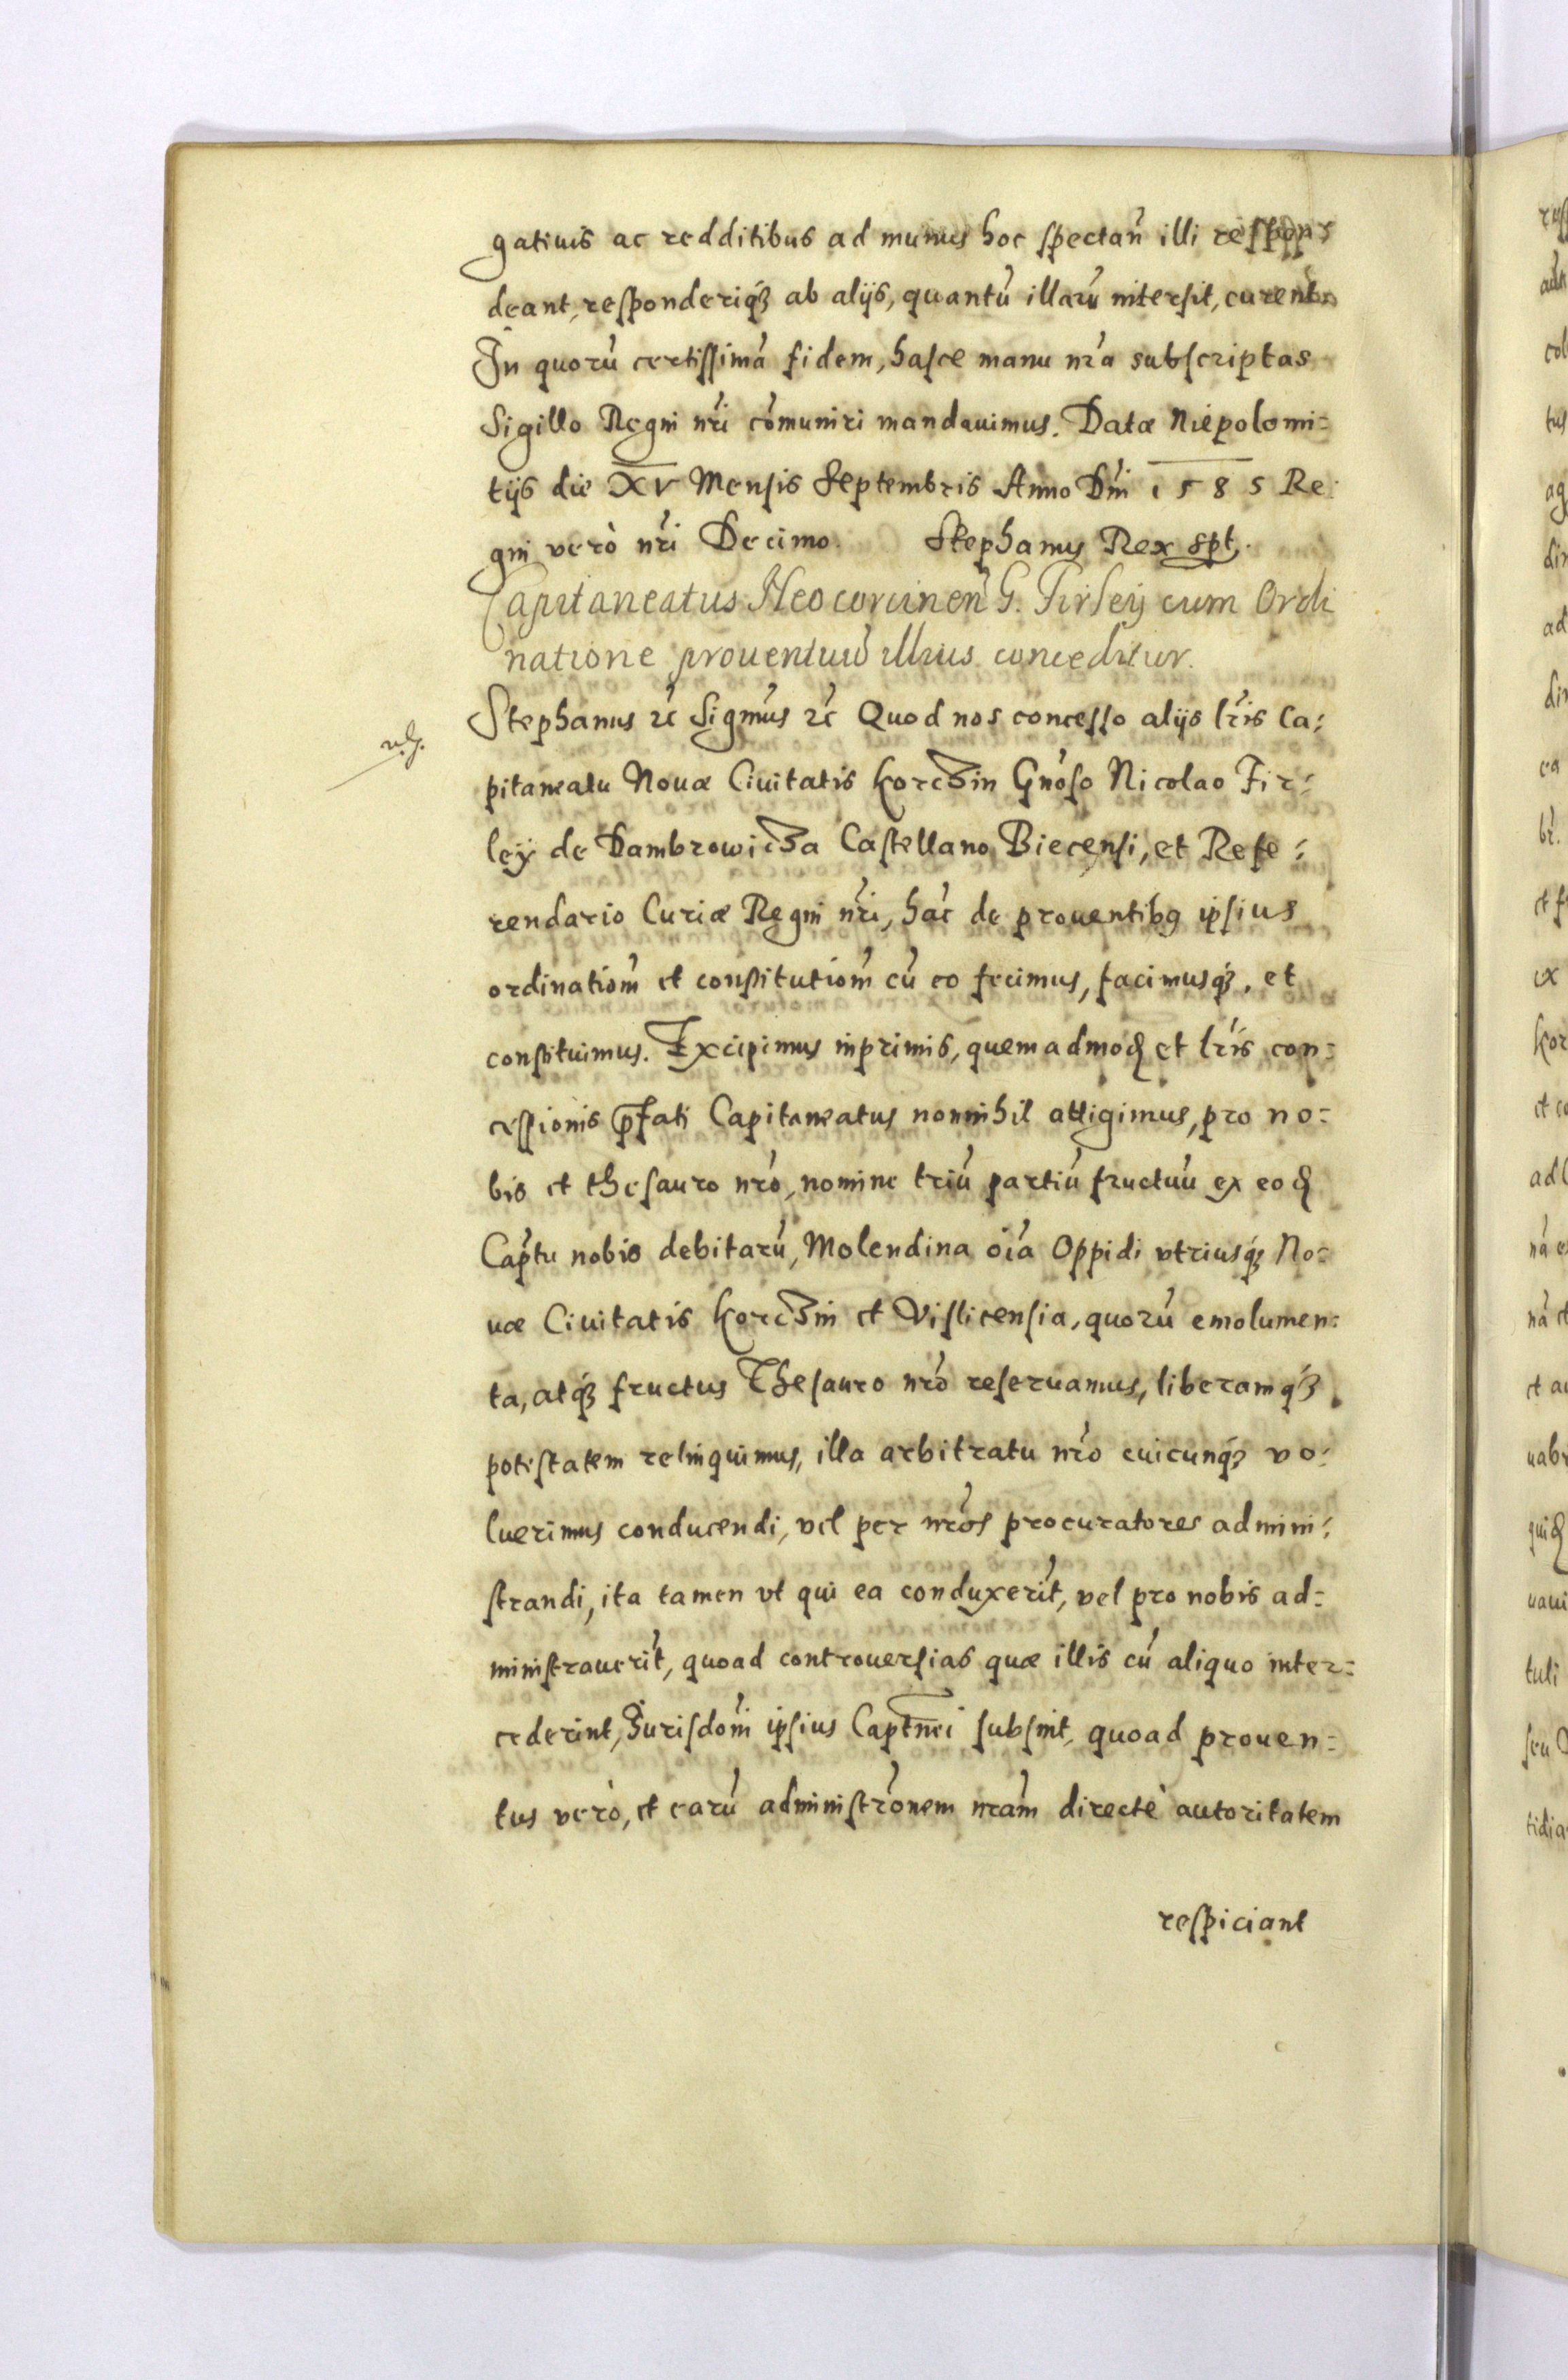 gatiuis ac redditibus ad munus hoc spectan̄ illi respon⸗
deant, responderiq́ꝫ ab alijs, quantú illarú intersit, curent.
In quorú certissimá fidem, hasce manu nr̃a subscriptas
Sigillo Regni nr̃i cómuniri mandauimus. Datæ Niepolomi⸗
tijs die XV Mensis Septembris Anno Dñi 1585 Re⸗
gni verò nr̃i Decimo. Stephanus Rex spt.
Capitaneatus Neocorcinen̄ G. Firleij cum Ordi
natione prouentuū illius conceditur.
Stephanus ꝛc̃ Sigmús ꝛc̃ Quod nos concesso alijs lr̃is Ca⸗
pitaneatu Nouæ Ciuitatis Korczin Gnóso Nicolao Fir⸗
leÿ de Dambrowicza Castellano Biecensi, et Refe⸗
rendario Curiæ Regni nr̃i, hác de prouentibꝯ ipsius
ordinatióm et constitutióm cú eo fecimus, facimusq́ꝫ, et
constituimus. Excipimus inprimis, quemadmoꝺ et lr̃is con⸗
cessionis p̃fati Capitaneatus nonnihil attigimus, pro no⸗
bis et thesauro nr̃o, nomine triú partiú fructuú ex eoꝺ
Cap̃tu nobis debitarú, Molendina oı̃a Oppidi vtriusq́ꝫ No⸗
uæ Ciuitatis Korczin et Vislicensia, quorú emolumen⸗
ta, atq́ꝫ fructus Thesauro nr̃o reseruamus, liberamq́ꝫ
potestatem relinquimus, illa arbitratu nr̃o cuicunq́ꝫ vo⸗
luerimus conducendi, vel per nr̃os procuratores admini⸗
strandi, ita tamen vt qui ea conduxerı́t, vel pro nobis ad⸗
ministrauerı́t, quoad controuersias quæ illis cú aliquo inter⸗
cederint, Jurisdóni ipsius Captn̄ei subsint, quoad prouen⸗
tus verò, et earú administrónem nrám directè autoritatem
respiciant